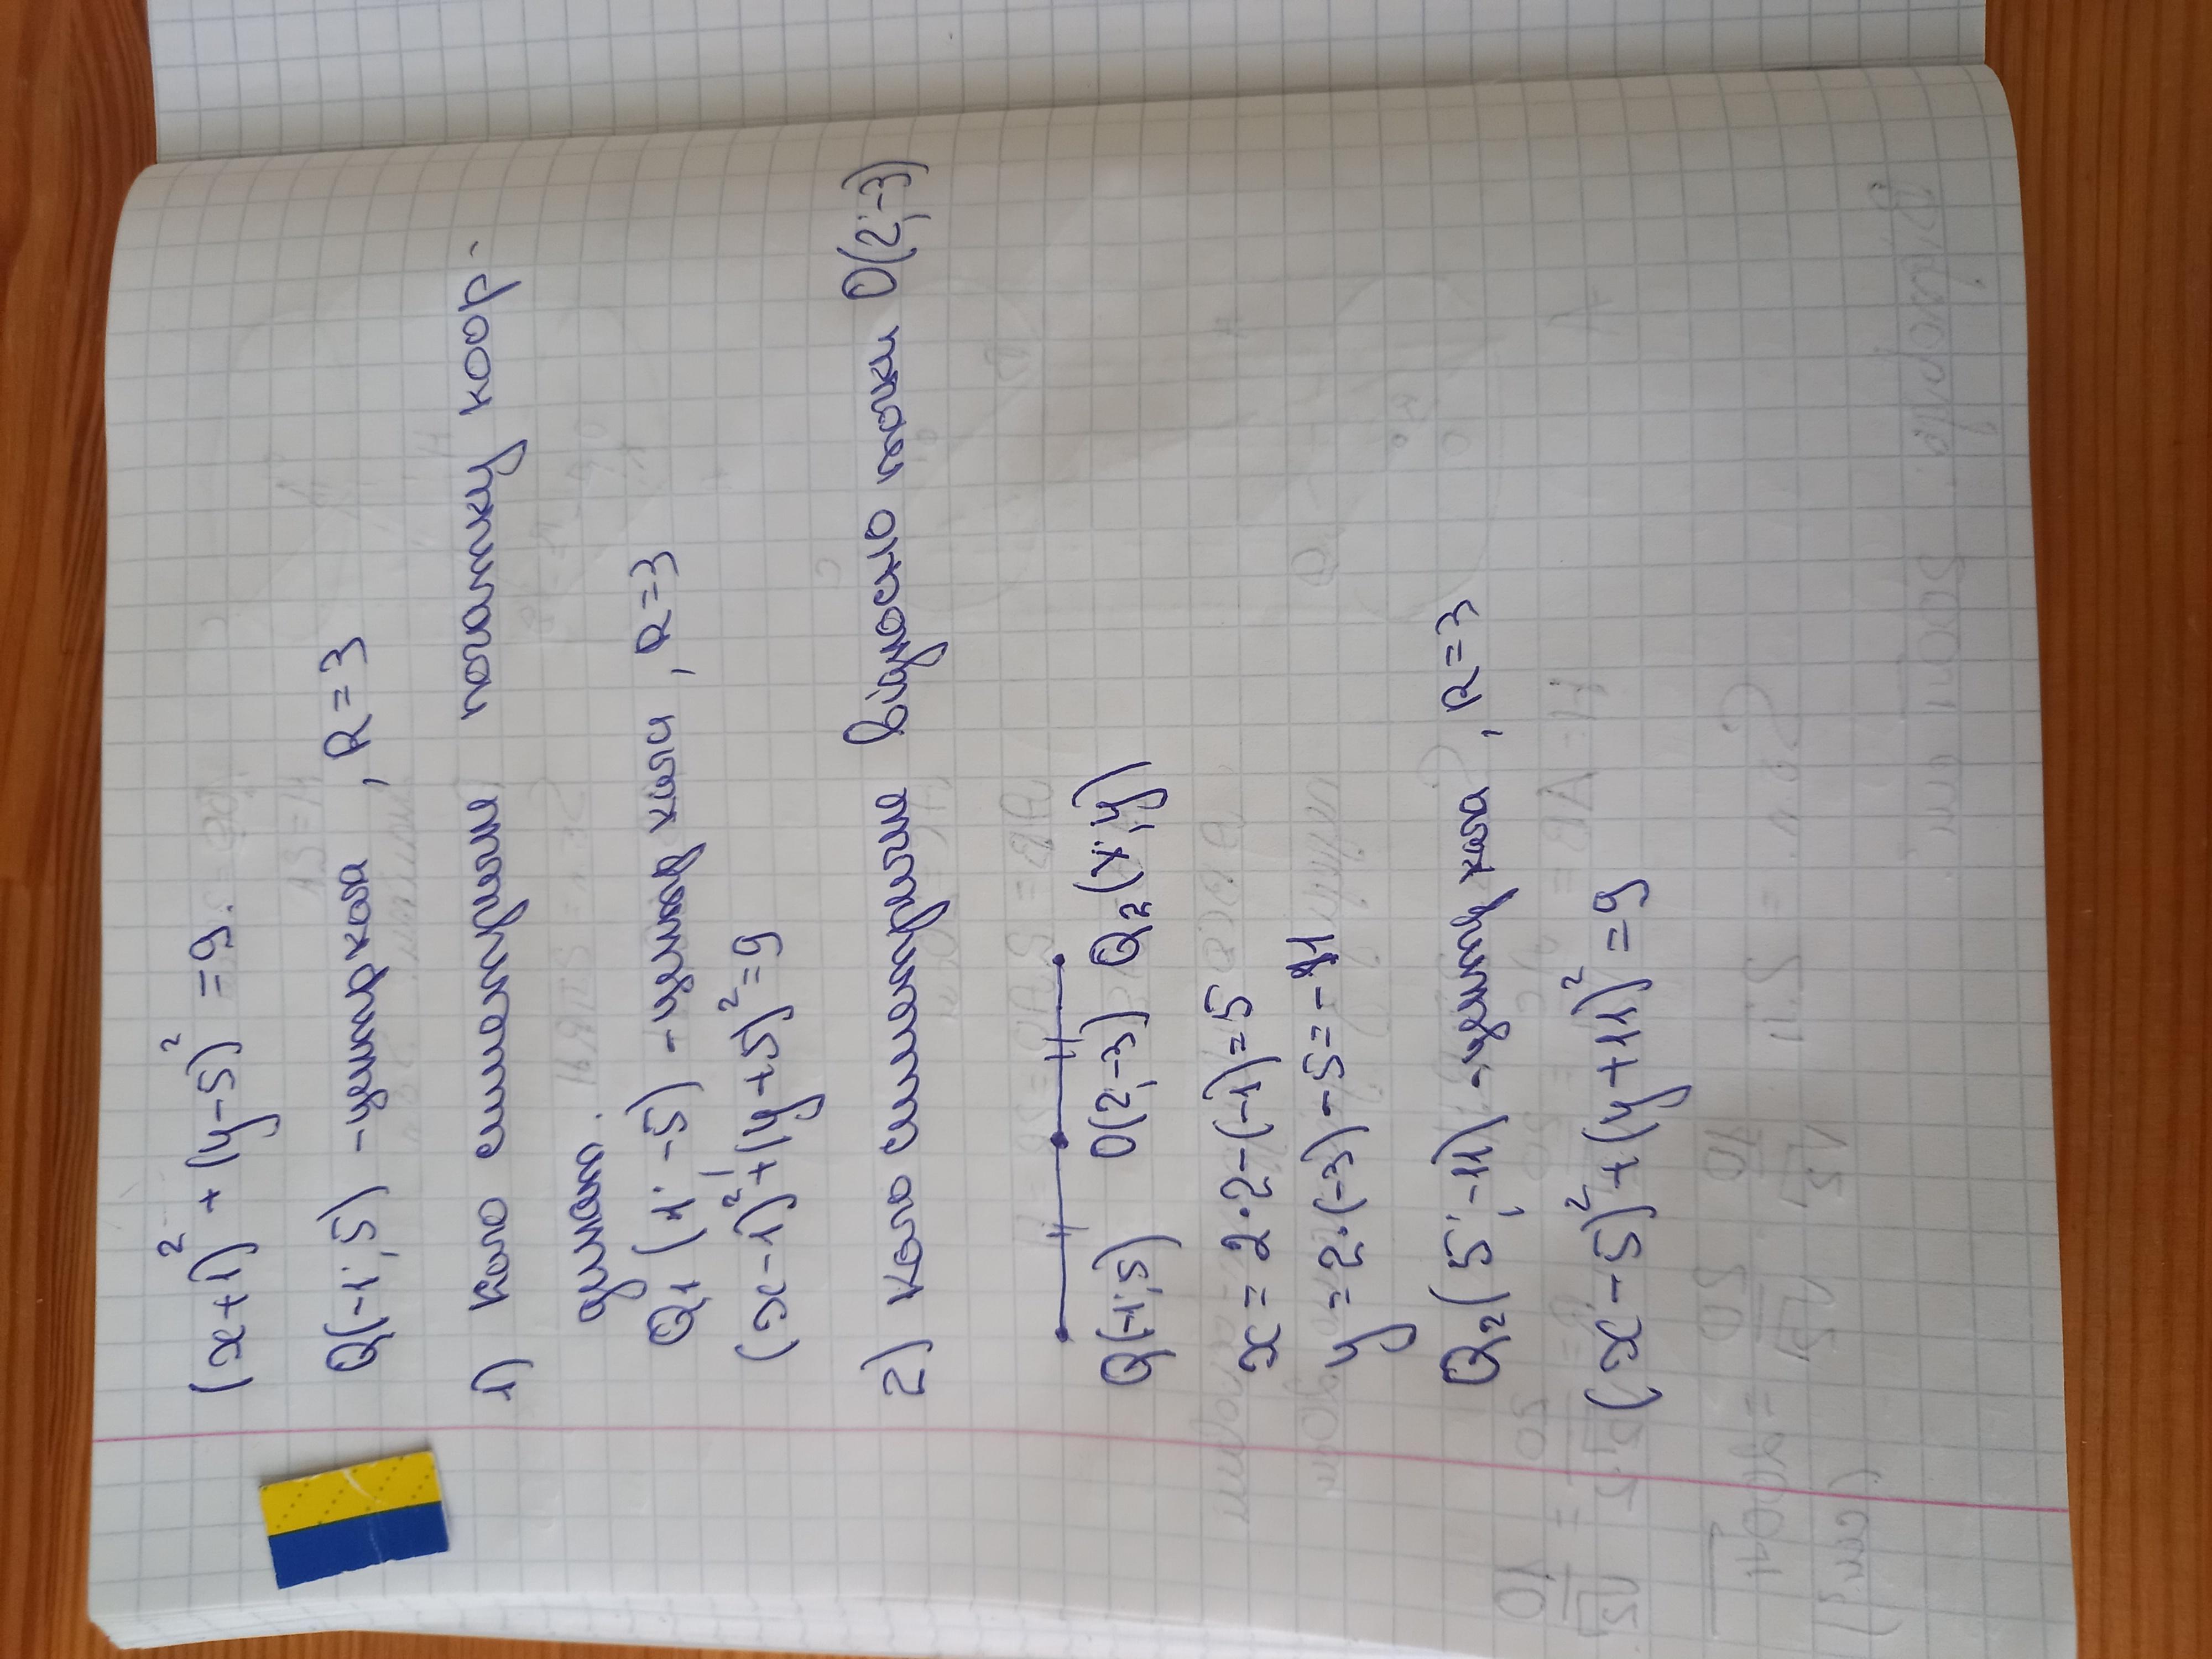 (x+1)² + (y-5)² = 9.
Q(-1; 5) - центр кола, R=3
1) коло симетричне початку коор-
динат.
Q₁ (1; -5) - центр кола, R=3
(x-1)² + (y+5)² = 9
2) коло симетричне відносно точки O(2;-3)
Q(-1;5) O(2;-3) Q₂(x;y)
x = 2·2-(-1)=5
y = 2·(-3)-5=-11
Q₂(5;-11) - центр кола, R=3
(x-5)²+(y+11)²=9